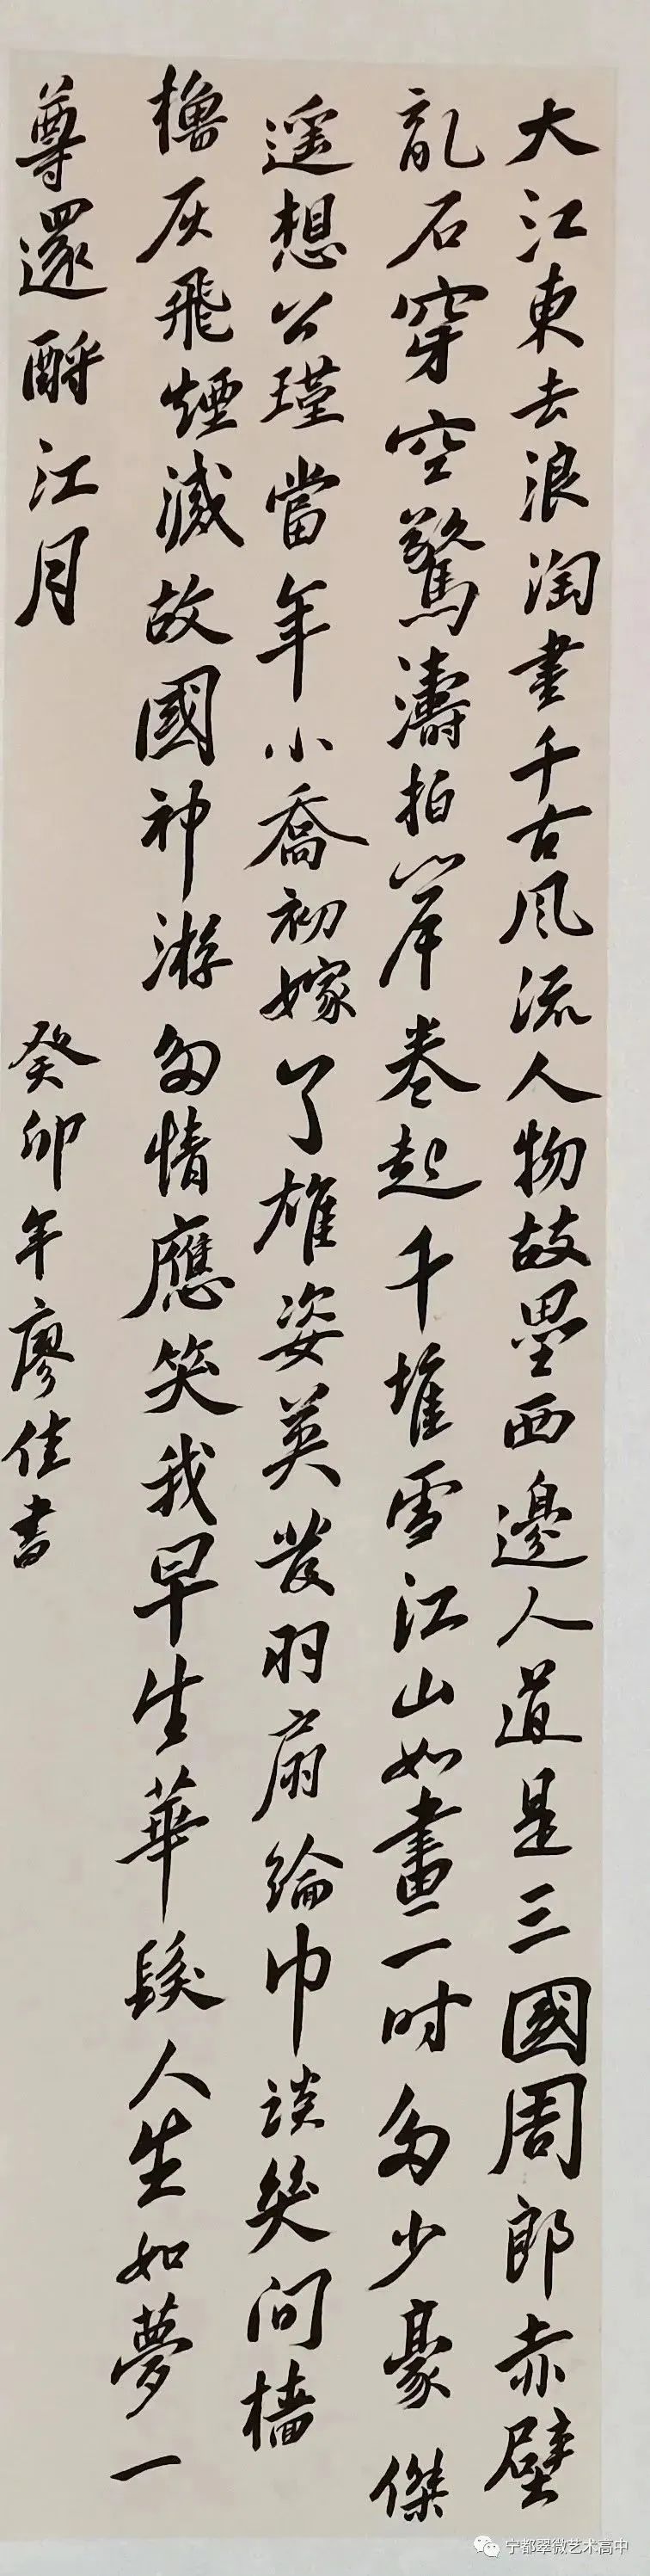 大江東去浪淘盡千古風流人物故壘西邊人道是三國周郎赤壁
亂石穿空驚濤拍岸卷起千堆雪江山如畫一時多少豪傑
遥想公瑾當年小喬初嫁了雄姿英發羽扇綸巾談笑間檣
櫓灰飛煙滅故國神游多情應笑我早生華髮人生如夢一
尊還酹江月
癸卯年廖佳書
宁都翠微艺术高中